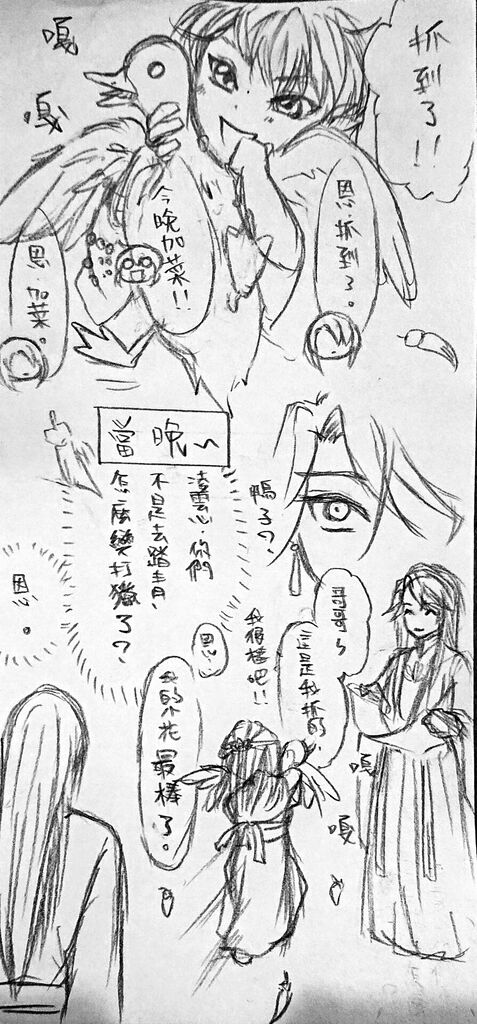 抓到了!!
嘎
嘎
恩 抓到了。
今晚加菜!!
恩 加菜。
當晚~
鴨子?
淩雲心 你們
不是去踏青
怎麼變打獵了?
恩。
哥哥~
這是我抓的
我很棒吧!!
恩
我的小花
最棒了。
嘎
嘎